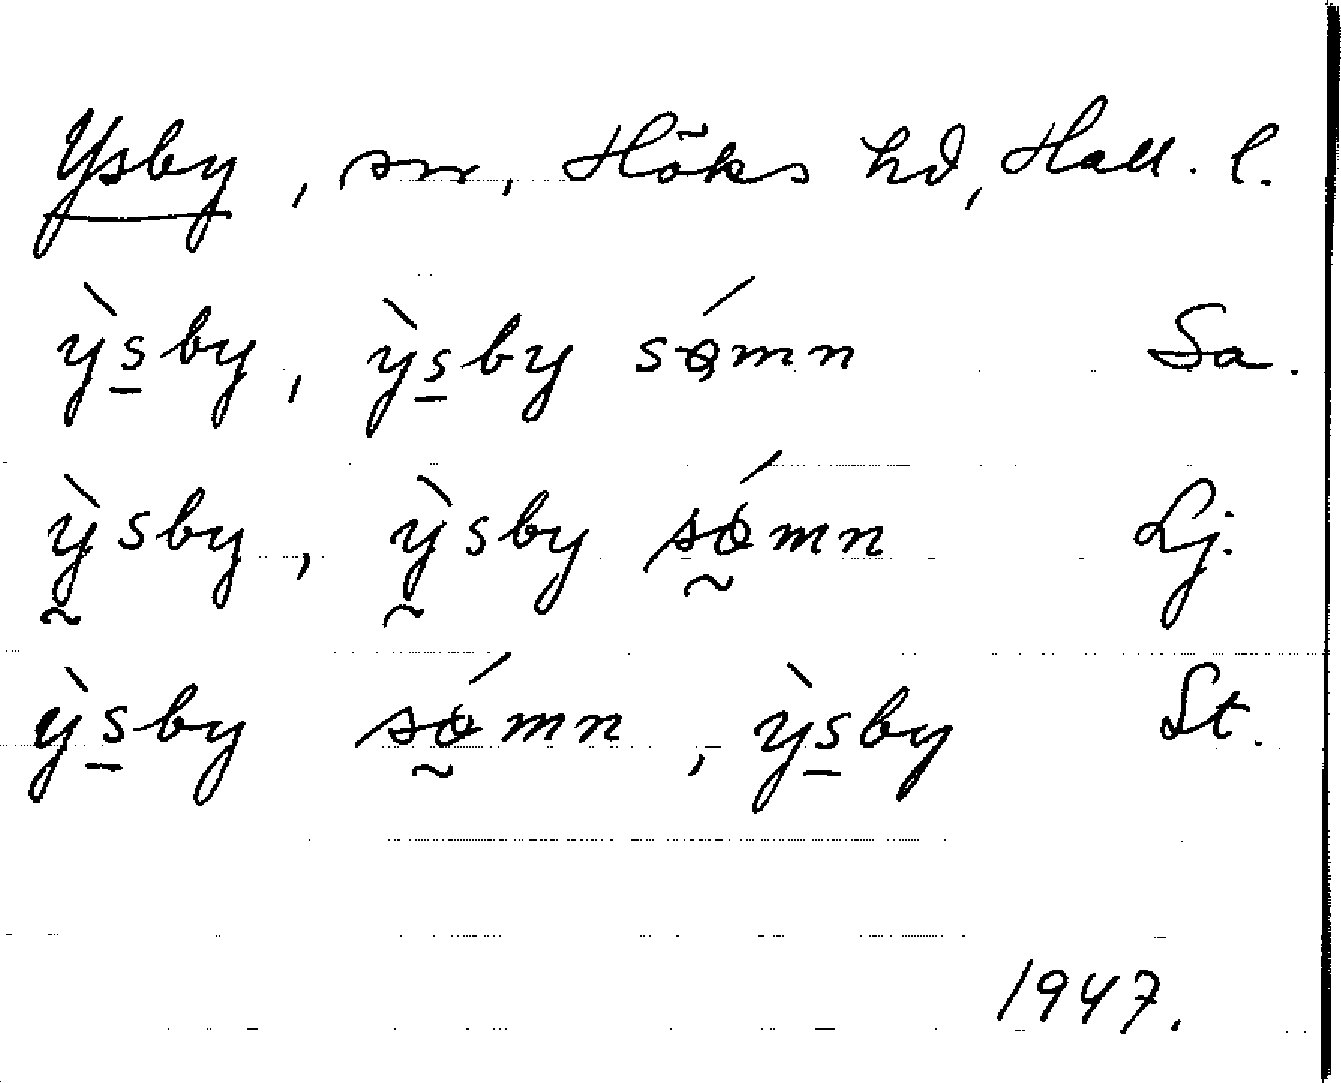 Ysby, sn, Höks hd, Hall. l.
ỳs̲by, ỳs̲by sǿmn Sa.
ỳ̰sby, ỳ̰sby sǿ̰mn Lj.
ỳs̲by sǿ̰mn, ỳs̲by St.
1947.